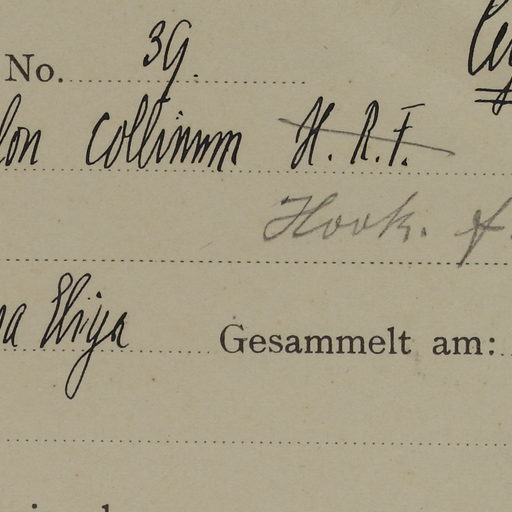 No. 39.
lon collinum H. R. F.
Hook. f.
a Eliya Gesammelt am: